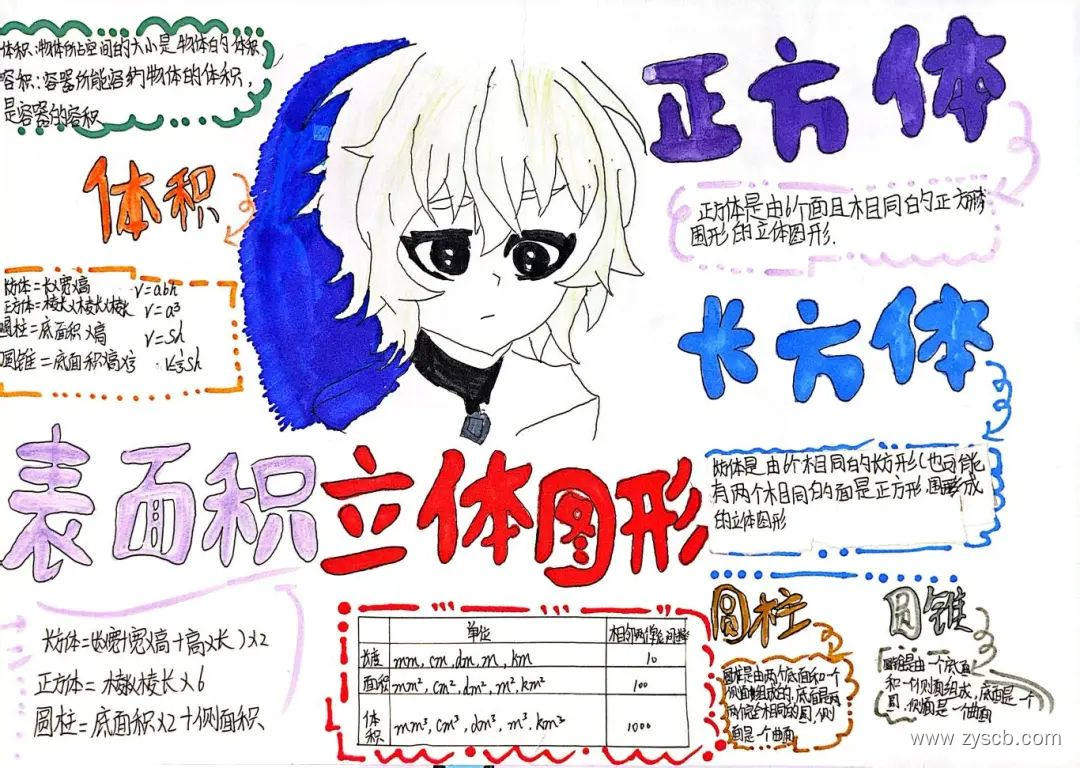 体积:物体所占空间的大小是物体的体积
容积:容器所能容纳物体的体积,
是容器的容积
体积
长方体=长x宽x高 V=abh
正方体=棱长x棱长x棱长 V=a³
圆柱=底面积x高 V=Sh
圆锥=底面积x高x⅓ V=⅓Sh
正方体
正方体是由6个面且木目同的正方形
围形的立体图形.
长方体
长方体是由6个木目同的长方形(也可能
有两个木目同的面是正方形 围成
的立体图形
表面积
长方体=(长x宽+宽x高+高x长)x2
正方体=棱长x棱长x6
圆柱=底面积x2+侧面积
立体图形
单位
长度 mm, cm, dm, m, km 10
面积 mm², cm², dm², m², km² 100
体积 mm³, cm³, dm³, m³, km³ 1000
圆柱
圆柱是由两个底面和一个
侧面组成的,底面是两
个完全相同的圆,侧
面是一个曲面
圆锥
圆锥是由一个底面
和一个侧面组成,底面是一个
圆,侧面是一个曲面
www.zyscb.com